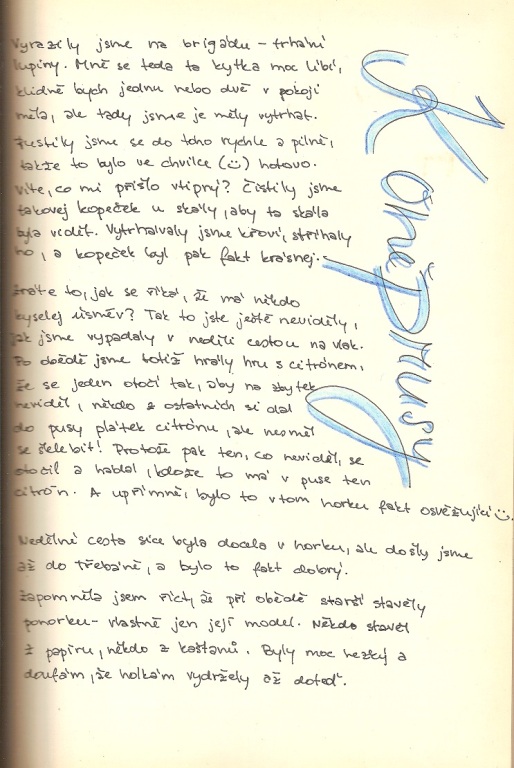 Vyrazily jsme na brigádu – trhání
lupiny. Mně se teda ta kytka moc líbí,
klidně bych jednu nebo dvě v pokoji
měla, ale tady jsme je měly vytrhat.
Pustily jsme se do toho rychle a pilně,
takže to bylo ve chvilce (☺) hotovo.
Víte, co mi přišlo vtipný? Čistily jsme
takovej kopeček u skály, aby ta skála
byla vidět. Vytrhávaly jsme křoví, stříhaly
ho, a kopeček byl pak fakt krásnej.
Koněprusy
Znáte to, jak se říká, že má někdo
kyselej úsměv? Tak to jste ještě neviděly,
jak jsme vypadaly v neděli cestou na vlak.
Po obědě jsme totiž hrály hru s citrónem,
že se jeden otočí tak, aby na zbytek
neviděl, někdo z ostatních si dal
do pusy plátek citrónu, ale nesměl
se šklebit! Protože pak ten, co neviděl, se
otočil a hádal, kdože to má v puse ten
citrón. A upřímně, bylo to v tom horku fakt osvěžující ☺.
Nedělní cesta sice byla docela v horku, ale došly jsme
až do Třebáně, a bylo to fakt dobrý.
Zapomněla jsem říct, že při obědě starší stavěly
ponorku – vlastně jen její model. Někdo stavěl
z papíru, někdo z kaštanů. Byly moc hezký a
doufám, že holkám vydržely až doteď.